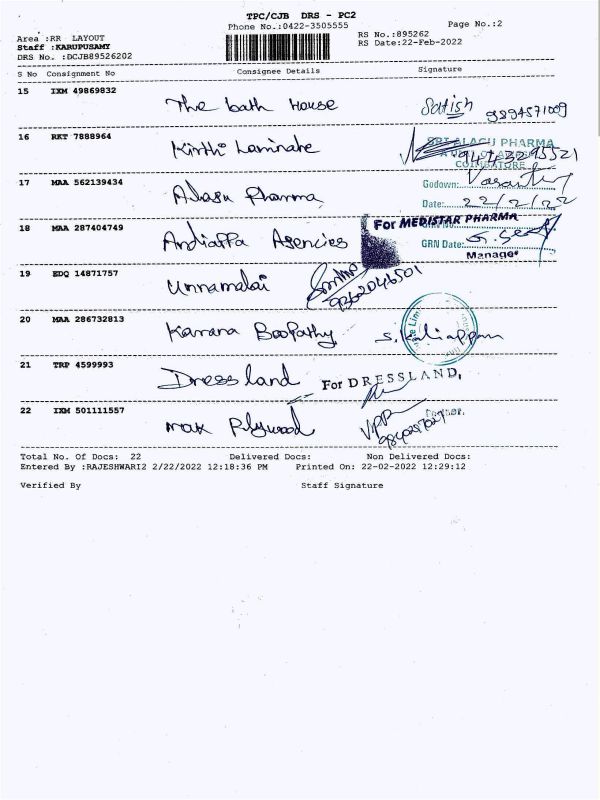 TPC/CJB DRS - PC2
Phone No.:0422-3505555 Page No.:2
Area :RR LAYOUT RS No.:895262
Staff :KARUPUSAMY RS Date:22-Feb-2022
DRS No. :DCJB89526202
S No Consignment No Consignee Details Signature
15 IXM 49869832 The bath House Satish 9894571009
16 RKT 7888964 Kirthi Laminate
SRI ALAGU PHARMA
COIMBATORE
17 MAA 562139434 Alagu Pharma Godown:
Date: 22/2/22
18 MAA 287404749 Andiappa Agencies For MEDISTAR PHARMA
GRN Date:
Manager
19 EDQ 14871757 Unnamalai 9362046501
20 MAA 286732813 Kanana Boopathy S. Kaliappan
21 TRP 4599993 Dress land For DRESSLAND,
22 IXM 501111557 Max Plywood
Total No. Of Docs: 22 Delivered Docs: Non Delivered Docs:
Entered By :RAJESHWARI2 2/22/2022 12:18:36 PM Printed On: 22-02-2022 12:29:12
Verified By Staff Signature